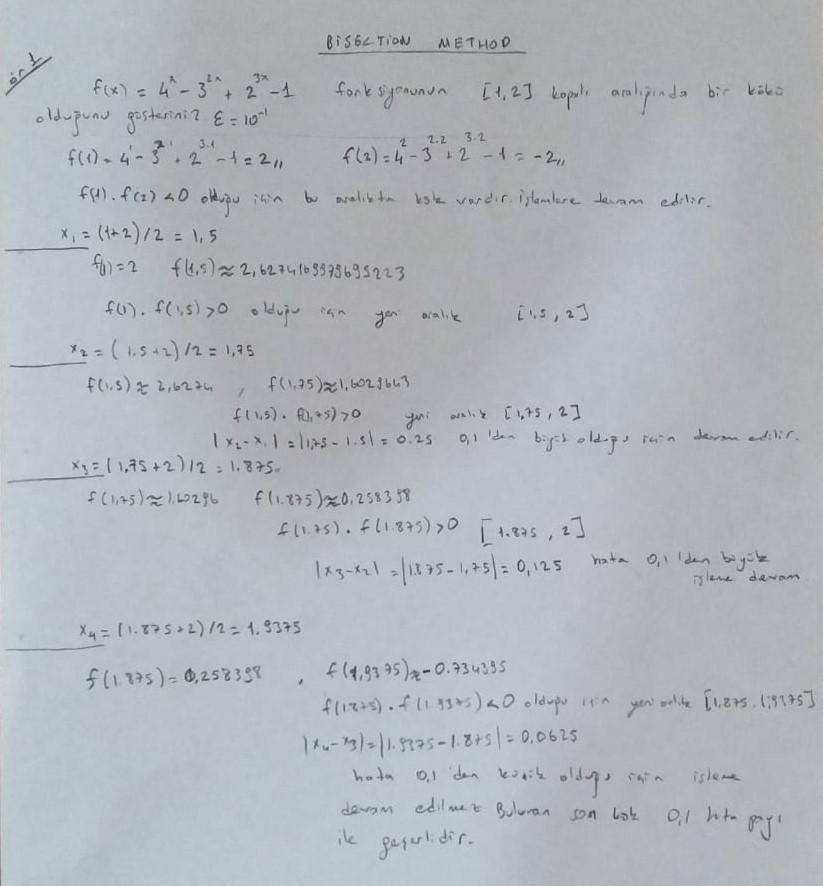 BISECTION METHOD
ör 1
f(x) = 4^x - 3^2x + 2^3x - 1 fonksiyonunun [1,2] kapalı aralığında bir kökü
olduğunu gösteriniz? ε = 10^-1
f(1) = 4^1 - 3^2.1 + 2^3.1 - 1 = 2,, f(2) = 4^2 - 3^2.2 + 2^3.2 - 1 = -2,,
f(1) . f(2) < 0 olduğu için bu aralıkta kök vardır. işlemlere devam edilir.
x₁ = (1+2)/2 = 1,5
f(1) = 2 f(1,5) ≈ 2,6274169979695223
f(1) . f(1,5) > 0 olduğu için yeni aralık [1.5 , 2]
x₂ = ( 1.5 + 2) /2 = 1,75
f(1,5) ≈ 2,6274 , f(1,75) ≈ 1,6029643
f(1,5) . f(1,75) > 0 yeni aralık [1,75 , 2]
|x₂ - x₁| = |1,75 - 1.5| = 0.25 0,1 'den büyük olduğu için devam edilir.
x₃ = (1,75 + 2)/2 = 1.875
f(1,75) ≈ 1,60296 f(1.875) ≈ 0,258398
f(1.75) . f(1.875) > 0 [1.875 , 2]
|x₃ - x₂| = |1.875 - 1,75| = 0,125 hata 0,1 'den büyük
işleme devam
x₄ = (1.875 + 2)/2 = 1.9375
f(1.875) = 0,258398 , f(1,9375) ≈ -0.734395
f(1.875) . f(1.9375) < 0 olduğu için yeni aralık [1,875 , 1,9375]
|x₄ - x₃| = |1.9375 - 1.875| = 0,0625
hata 0,1 'den küçük olduğu için işleme
devam edilmez Bulunan son kök 0,1 hata payı
ile geçerlidir.